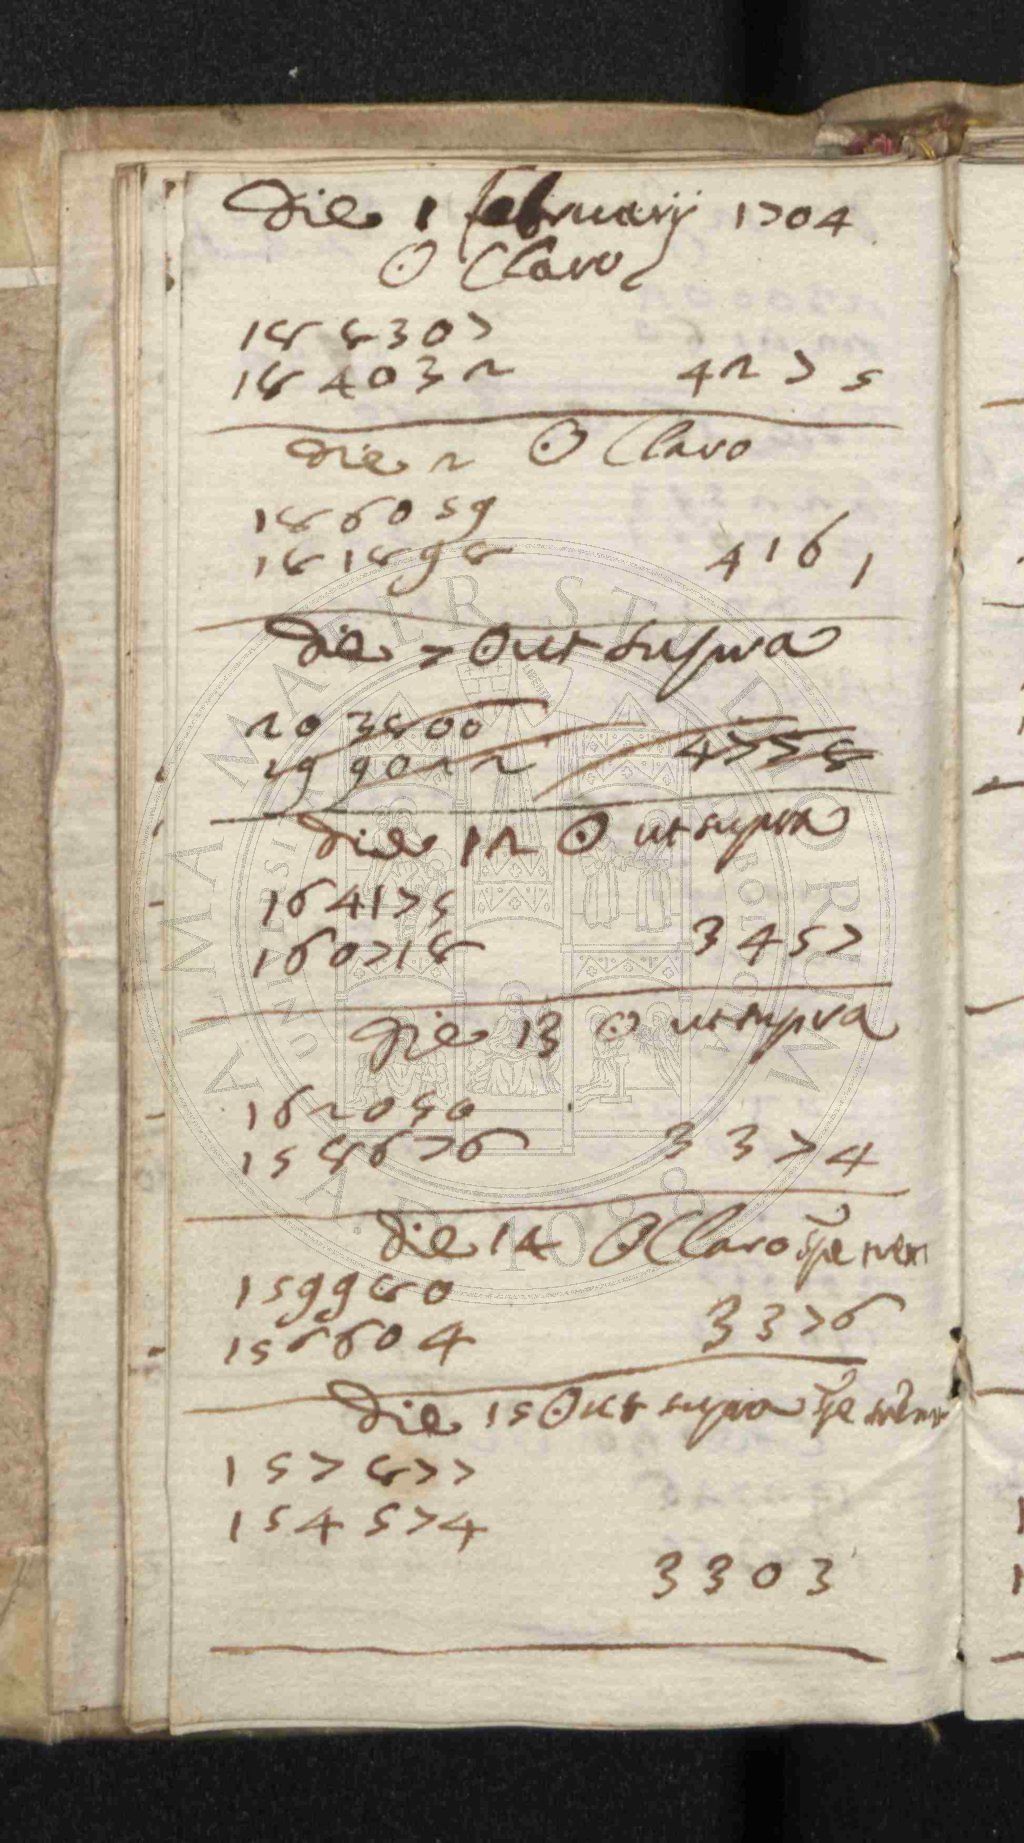 Die 1 februarij 1704
☉ Claro
188307
184032 4275
Die 2 ☉ Claro
186059
181898 4161
Die 7 ☉ ut supra
203800
199022 4778
Die 12 ☉ ut supra
164175
160718 3457
Die 13 ☉ ut supra
162050
158676 3374
Die 14 ☉ Claro
159980
156604 3376
Die 15 ☉ ut supra
157877
154574
3303
ALMA MATER STUDIORUM
A.D. 1088